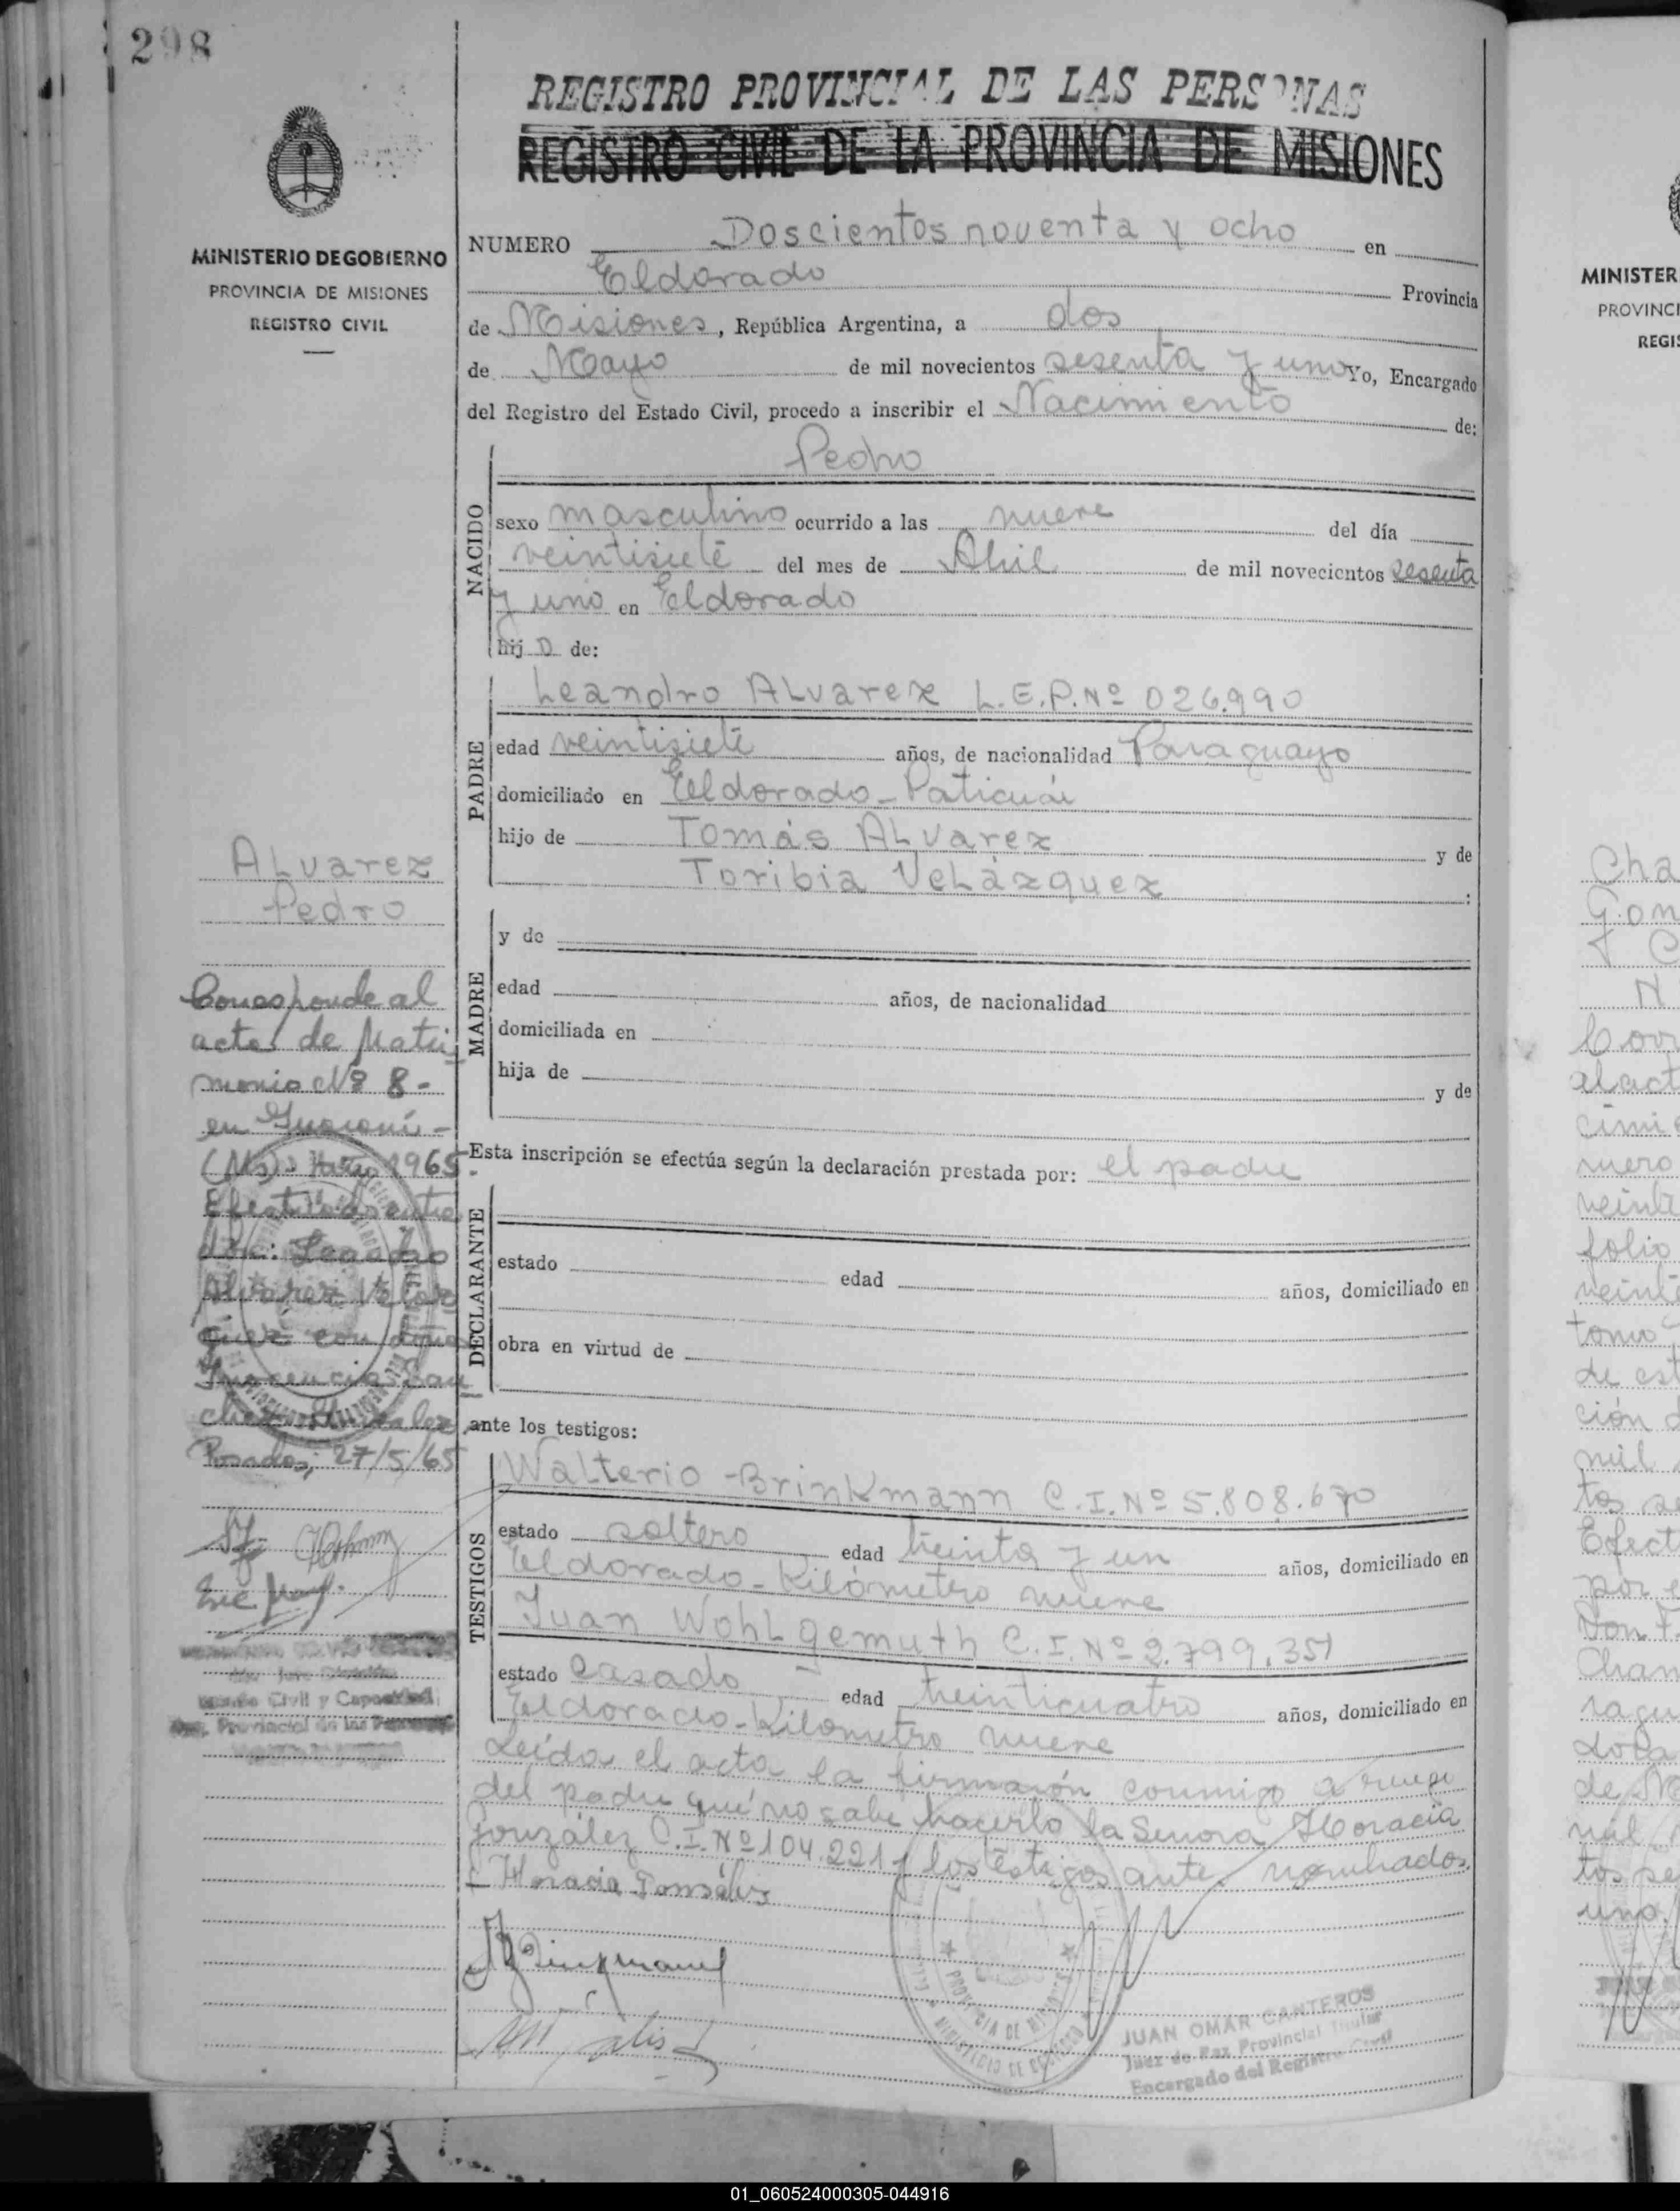 298
REGISTRO PROVINCIAL DE LAS PERSONAS
REGISTRO CIVIL DE LA PROVINCIA DE MISIONES
MINISTERIO DE GOBIERNO
PROVINCIA DE MISIONES
REGISTRO CIVIL
NUMERO Doscientos noventa y ocho en
Eldorado Provincia
de Misiones, República Argentina, a dos
de Mayo de mil novecientos sesenta y uno Yo, Encargado
del Registro del Estado Civil, procedo a inscribir el Nacimiento de:
NACIDO
Pedro
sexo masculino ocurrido a las nueve del día
veintisiete del mes de Abril de mil novecientos sesenta
y uno en Eldorado
hij o de:
PADRE
Leandro ALvarez L.E.P.Nº 026.990
edad veintisiete años, de nacionalidad Paraguayo
domiciliado en Eldorado-Paticuái
hijo de Tomás ALvarez y de
Toribia VeLázquez ;
MADRE
y de
edad años, de nacionalidad
domiciliada en
hija de y de
Esta inscripción se efectúa según la declaración prestada por: el padre
DECLARANTE
estado edad años, domiciliado en
obra en virtud de
ante los testigos:
TESTIGOS
WaLterio BrinKmann C.I.Nº 5.808.670
estado soltero edad treinta y un años, domiciliado en
Eldorado-Kilómetro nueve
Juan WohLgemuth C.I.Nº 2.799.351
estado casado edad treinticuatro años, domiciliado en
Eldorado-Kilometro nueve
Leída el acta la firmarón conmigo a ruego
del padre qué no sabe hacerlo la Senora Horacia
González C.I.Nº 104.221 y los testigos antes nombrados.
Horacia Gonsález
JUAN OMAR CANTEROS
Juez de Paz Provincial Titular
Encargado del Registro Civil
PROVINCIA DE MISIONES
MINISTERIO DE GOBIERNO
ALvarez
Pedro
Corresponde al
acta de Matri
monio Nº 8-
en Guaraní-
(Ms). Año 1965
Efectuado entre
don: Leandro
Alvarez Veláz
quez con doña
Inocencia San
chez
Posadas, 27/5/65
Civil y Capacidad
Provincial de las Personas
MINISTER
PROVINCI
REGIS
Cha
Gon
N
al act
cimie
mero
veinti
folio
veinte
tomo
de est
ción d
mil
Efect
por e
Don F
Chan
de M
mil
tos se
uno.
01_060524000305-044916